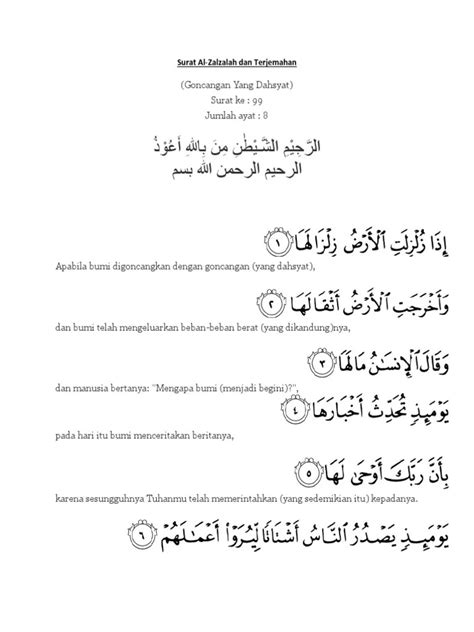 Surat Al-Zalzalah dan Terjemahan
(Goncangan Yang Dahsyat)
Surat ke : 99
Jumlah ayat : 8
الرَّجِيْمِ الشَّـيْطٰنِ مِنَ بِاللهِ أَعُوْذُ
الرحيم الرحمن الله بسم
إِذَا زُلْزِلَتِ ٱلْأَرْضُ زِلْزَالَهَا ١
Apabila bumi digoncangkan dengan goncangan (yang dahsyat),
وَأَخْرَجَتِ ٱلْأَرْضُ أَثْقَالَهَا ٢
dan bumi telah mengeluarkan beban-beban berat (yang dikandung)nya,
وَقَالَ ٱلْإِنسَـٰنُ مَا لَهَا ٣
dan manusia bertanya: "Mengapa bumi (menjadi begini)?",
يَوْمَئِذٍ تُحَدِّثُ أَخْبَارَهَا ٤
pada hari itu bumi menceritakan beritanya,
بِأَنَّ رَبَّكَ أَوْحَىٰ لَهَا ٥
karena sesungguhnya Tuhanmu telah memerintahkan (yang sedemikian itu) kepadanya.
يَوْمَئِذٍ يَصْدُرُ ٱلنَّاسُ أَشْتَاتًا لِّيُرَوْا۟ أَعْمَـٰلَهُمْ ٦